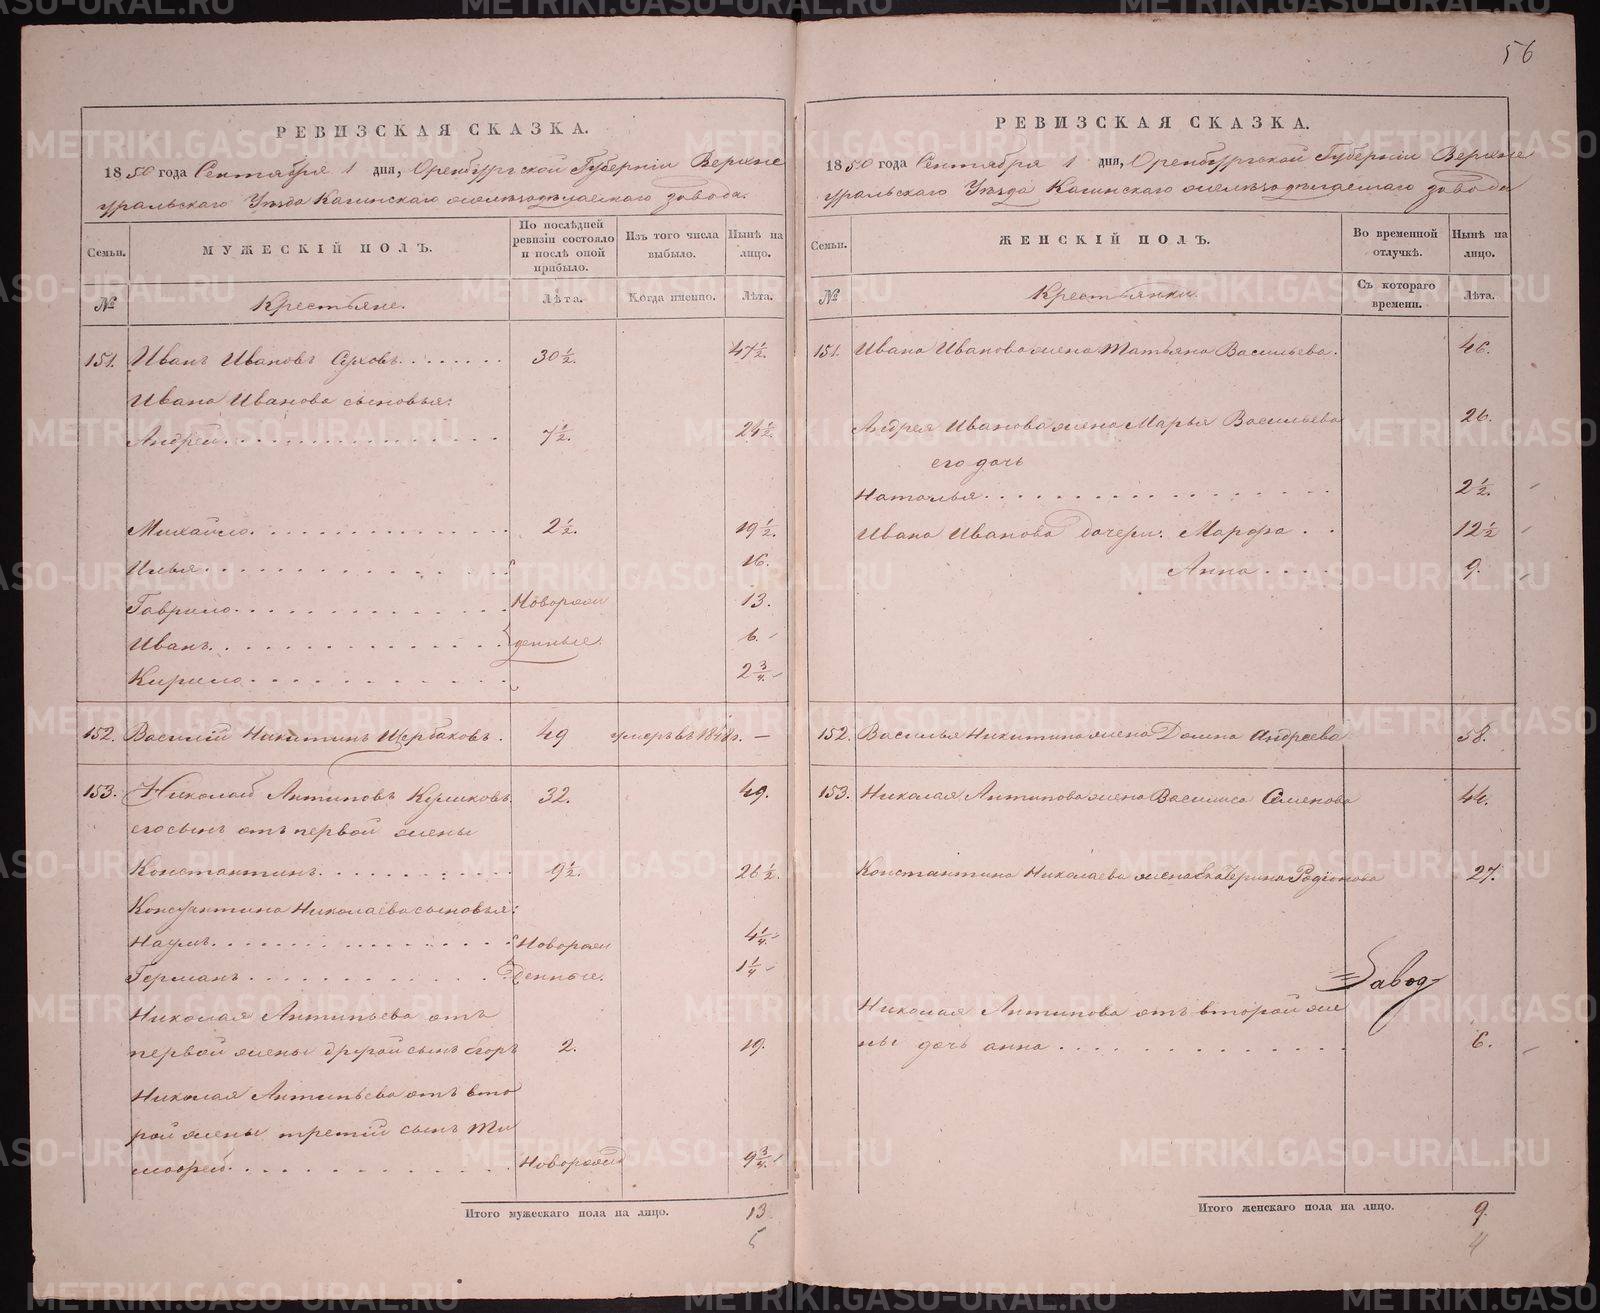 56
РЕВИЗСКАЯ СКАЗКА.
1850 года Сентября 1 дня, Оренбургской Губерніи Верхне
уральскаго Уѣзда Кагинскаго желѣзодѣлаемаго завода.
Семьи.
МУЖЕСКІЙ ПОЛЪ.
По послѣдней ревизіи состояло и послѣ оной прибыло.
Изъ того числа выбыло.
Нынѣ на лицо.
№
Крестьяне.
Лѣта.
Когда именно.
Лѣта.
151. Иванъ Ивановъ 30½. 47½.
Ивана Иванова сыновья:
Андрей 7½. 24½.
Михайло 2½. 19½.
Илья 16.
Гаврило Новорож 13.
Иванъ денные. 6.
Кирило 2¾.
152. Василій Никитинъ Щербаковъ. 49 умеръ въ —
153. Николай Антиповъ 32. 49.
его сынъ отъ первой жены
Константинъ 9½. 26½.
Константина Николаева сыновья:
Наумъ Новорож 4¼
Германъ денные. 1¼
Николая Антипьева отъ
первой жены другой сынъ Егоръ 2. 19.
Николая Антипьева отъ вто
рой жены третій сынъ Ти
мофей Новорожд 9¾
Итого мужескаго пола на лицо. 13
5
РЕВИЗСКАЯ СКАЗКА.
1850 года Сентября 1 дня, Оренбургской Губерніи Верхне
уральскаго Уѣзда Кагинскаго желѣзодѣлаемаго завода
Семьи.
ЖЕНСКІЙ ПОЛЪ.
Во временной отлучкѣ.
Нынѣ на лицо.
№
Крестьянки
Съ котораго времени.
Лѣта.
151. Ивана Иванова жена Татьяна Васильева. 46.
Андрея Иванова жена Марья Васильева 26.
его дочь
Наталья 2½.
Ивана Иванова дочери: Марфа 12½
Анна 9.
152. Василья Никитина жена Домна Андреева 58.
153. Николая Антипова жена Василиса Семенова 44.
Константина Николаева жена Екатерина Родіонова 27.
Завод
Николая Антипова отъ второй же
ны дочь анна 6.
Итого женскаго пола на лицо. 9.
4
METRIKI.GASO-URAL.RU